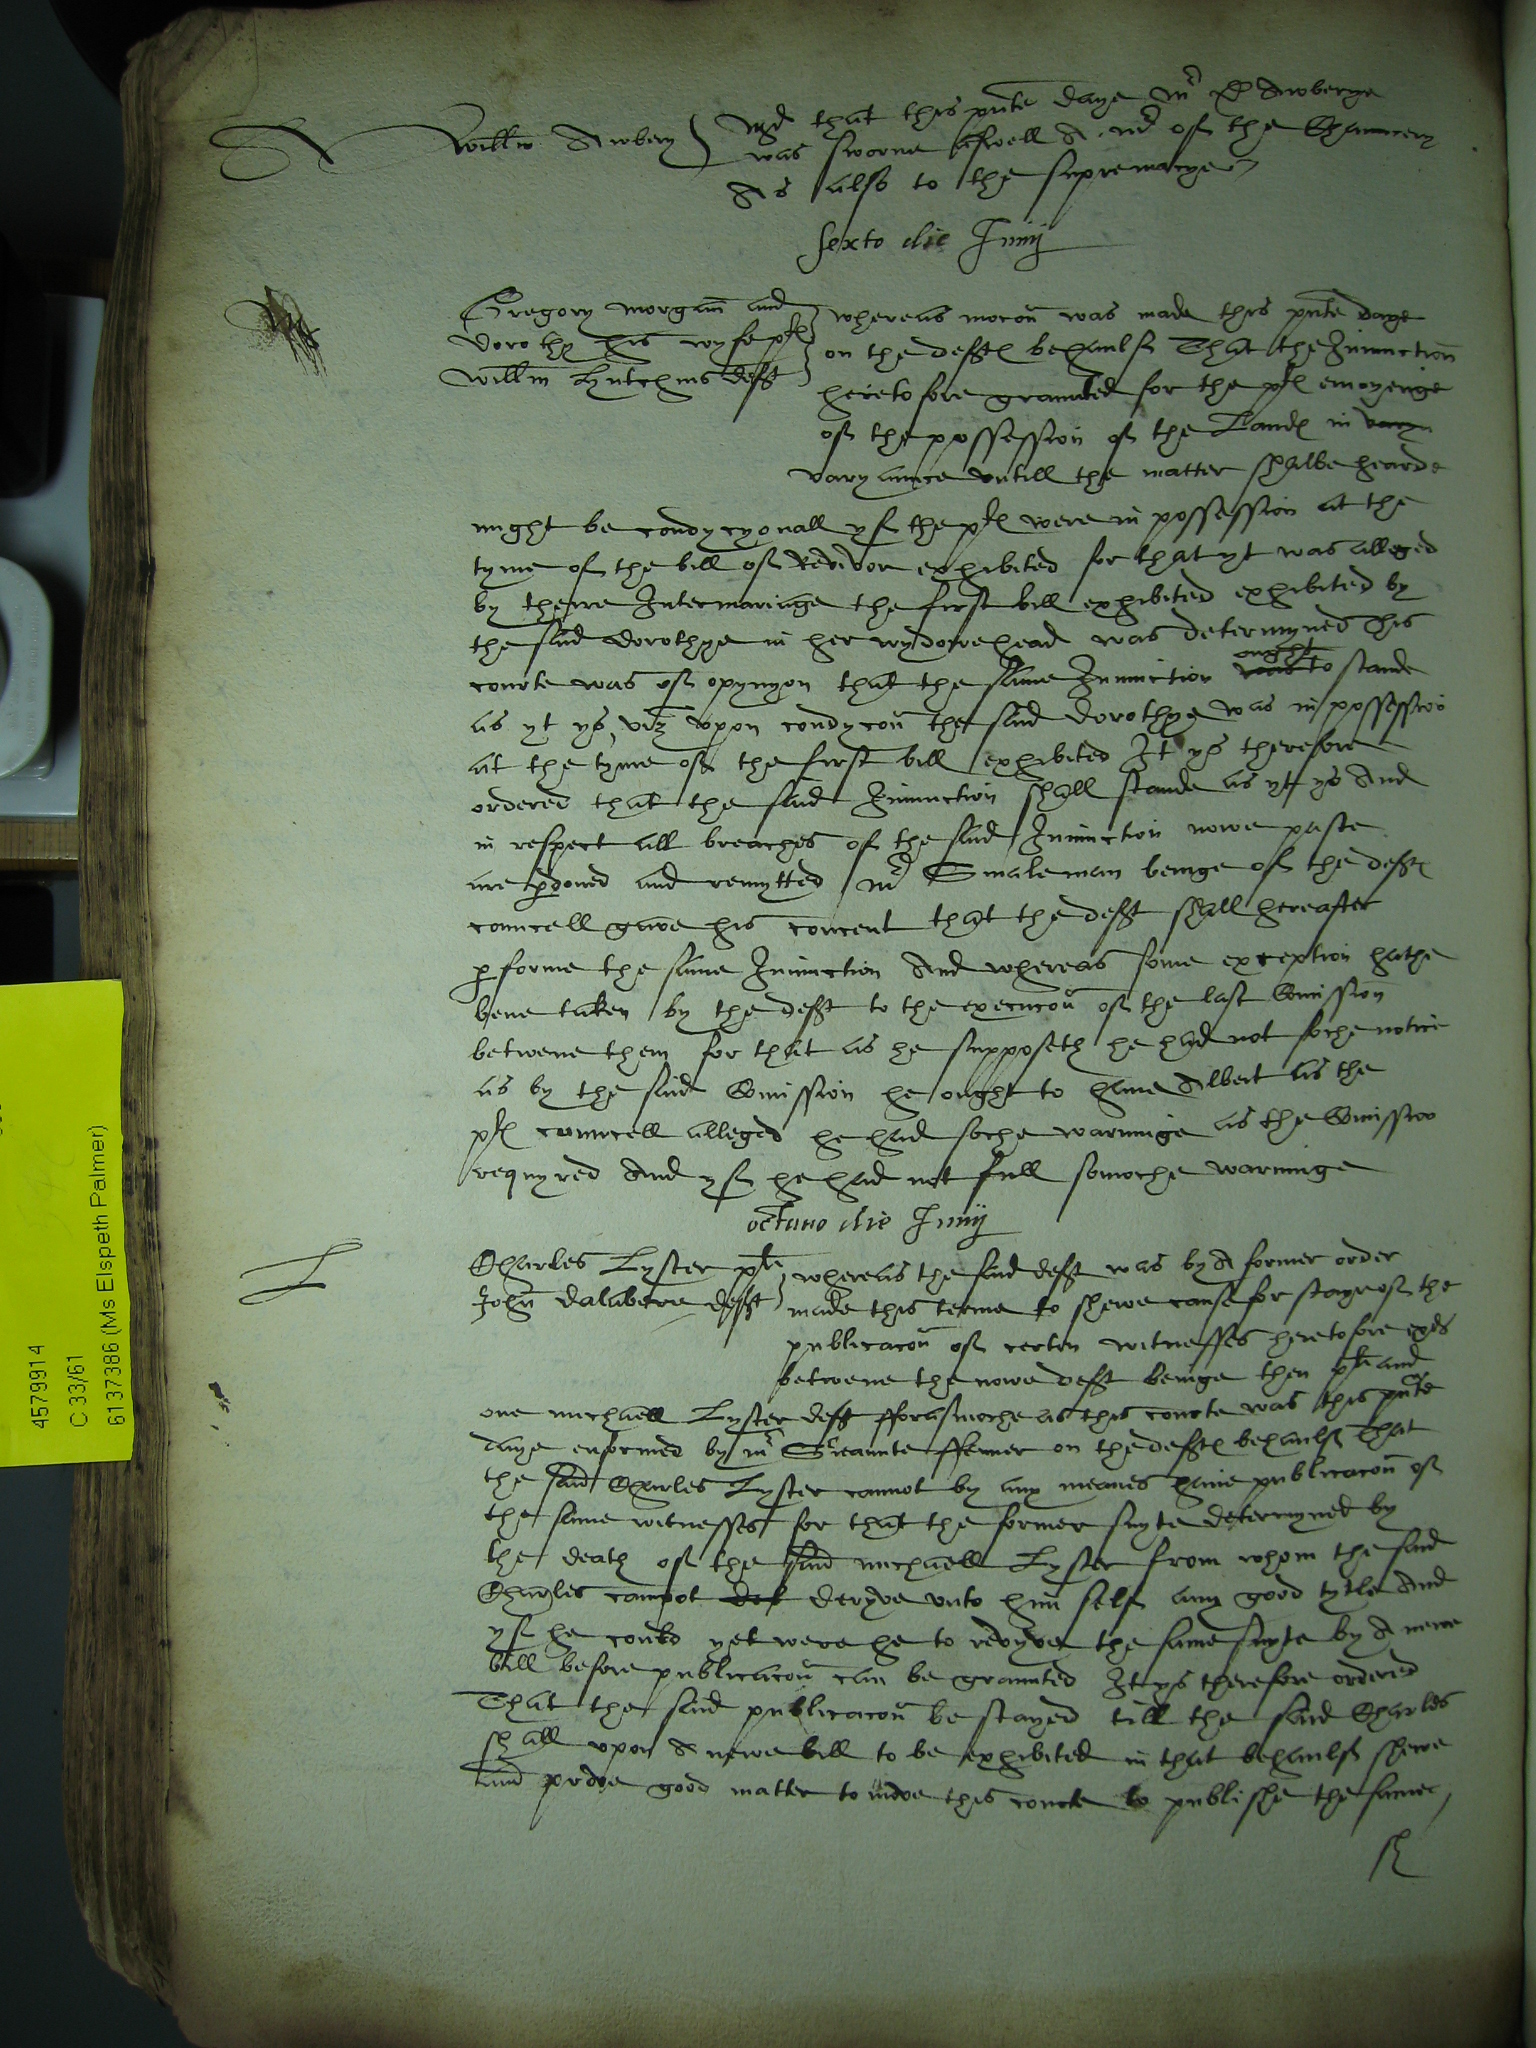 Willm Awbery } Md that this pnte daye Mr D Awberye
was sworne aswell A Mr of the Chauncery
As also to the supremacye
Sexto die Junij
Gregory Morgan and
Dorothy his wyfe pltes
Willm Hutchins deft
} Whereas mocon was made this pnte daye
on the deftes behaulf That the Iniunction
heretofore graunted for the pltes enioyenge
of the possession of the Landes in varyn
varyaunce vntill the matter shalbe hearde
might be condycyonall yf the pltes were in possession at the
tyme of the bill of Revivor exhibited for that yt was alleged
by theire Intermariage the first bill exhibited exhibited by
the said Dorothye in her wydowehead was determyned This
courte was of opynyon that the same Iniunction was ought to stande
as yt ys, vizt vpon condycon the said Dorothye was in possession
at the tyme of the first bill exhibited It ys therefore
ordered that the said Iniunction shall stande as yt ys And
in respect all breaches of the said Iniunction nowe paste
are pdoned and remytted Mr Smaleman beinge of the deftes
councell gave his concent that the deft shall hereafter
pforme the same Iniunction And whereas some exception hathe
bene taken by the deft to the execucon of the last Comission
betwene them for that as he supposeth he had not soche notice
as by the said Comission he ought to haue Albeit as the
pltes councell alleged he had soche warninge as the Comission
requyred And yf he had not full somoche warninge
octauo die Junij
Charles Lyster plte
John Dalabere deft
} whereas the said deft was by A former order
made this terme to shewe cause for staye of the
publicacon of certen witnesses heretofore exds
betwene the nowe deft beinge then plte and
one Michaell Lyster deft fforasmoche as this courte was this pnte
daye enformed by Mr Sriaunte ffenner on the deftes behaulf That
the said Charles Lyster cannot by any meanes haue publicacon of
the same witnesses for that the former suyte determyned by
the death of the said Michaell Lyster from whom the said
Charles cannot def deryve vnto him self any good tytle And
yf he could yet were he to revyve the same suyte by A newe
bill before publicacon can be graunted It ys therefore ordered
That the said publicacon be stayed till the said Charles
shall vpon A newe bill to be exhibited in that behaulf shewe
and prove good matter to move this courte to publishe the same
4579914
C 33/61
6137386 (Ms Elspeth Palmer)